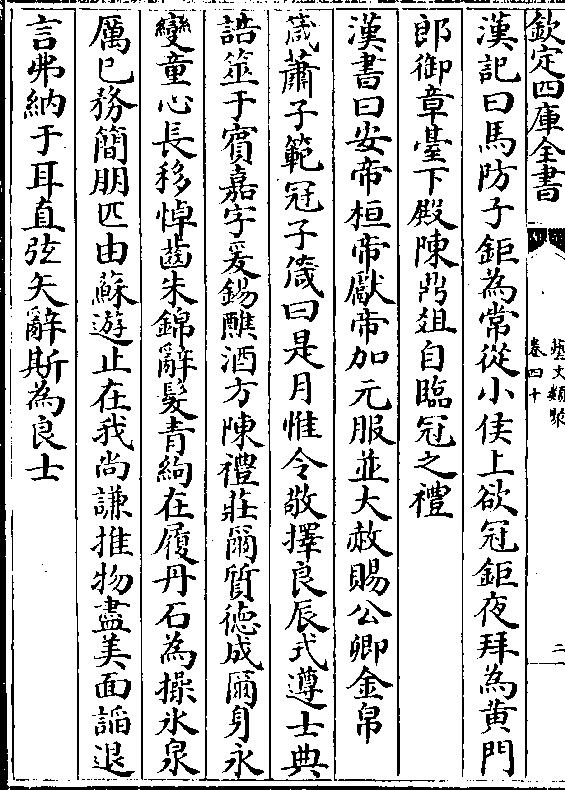 欽定四庫全書
藝文類聚
卷四十
二
漢記曰馬防子鉅為常從小侯上欲冠鉅夜拜為黄門
郎御章臺下殿陳鼎俎自臨冠之禮
漢書曰安帝桓帝獻帝加元服並大赦賜公卿金帛
箴蕭子範冠子箴曰是月惟令敬擇良辰式遵士典
誥筮于賓嘉字爰錫醮酒方陳禮莊爾質徳成爾身永
變童心長移悼齒朱錦辭髮青絢在履丹石為操氷泉
厲已務簡朋匹由蘇遊止在我尚謙推物盡美面謟退
言弗納于耳直弦矢辭斯為良士